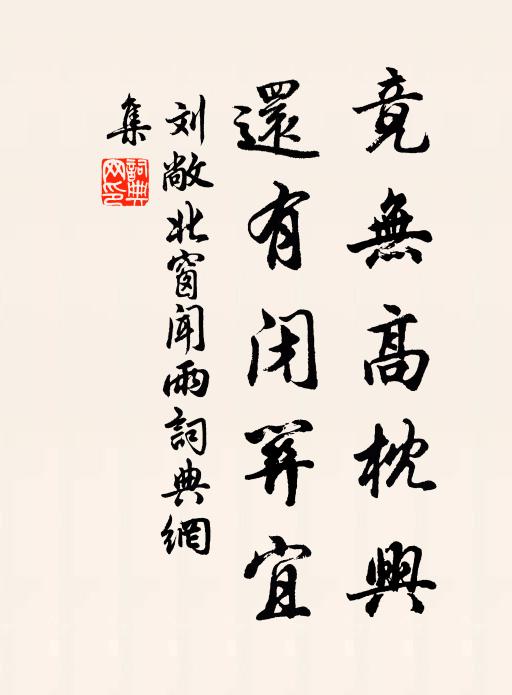 竟無高枕興
還有閉關宜
刘敞北窗闻雨詞典網
集
詞典
网印